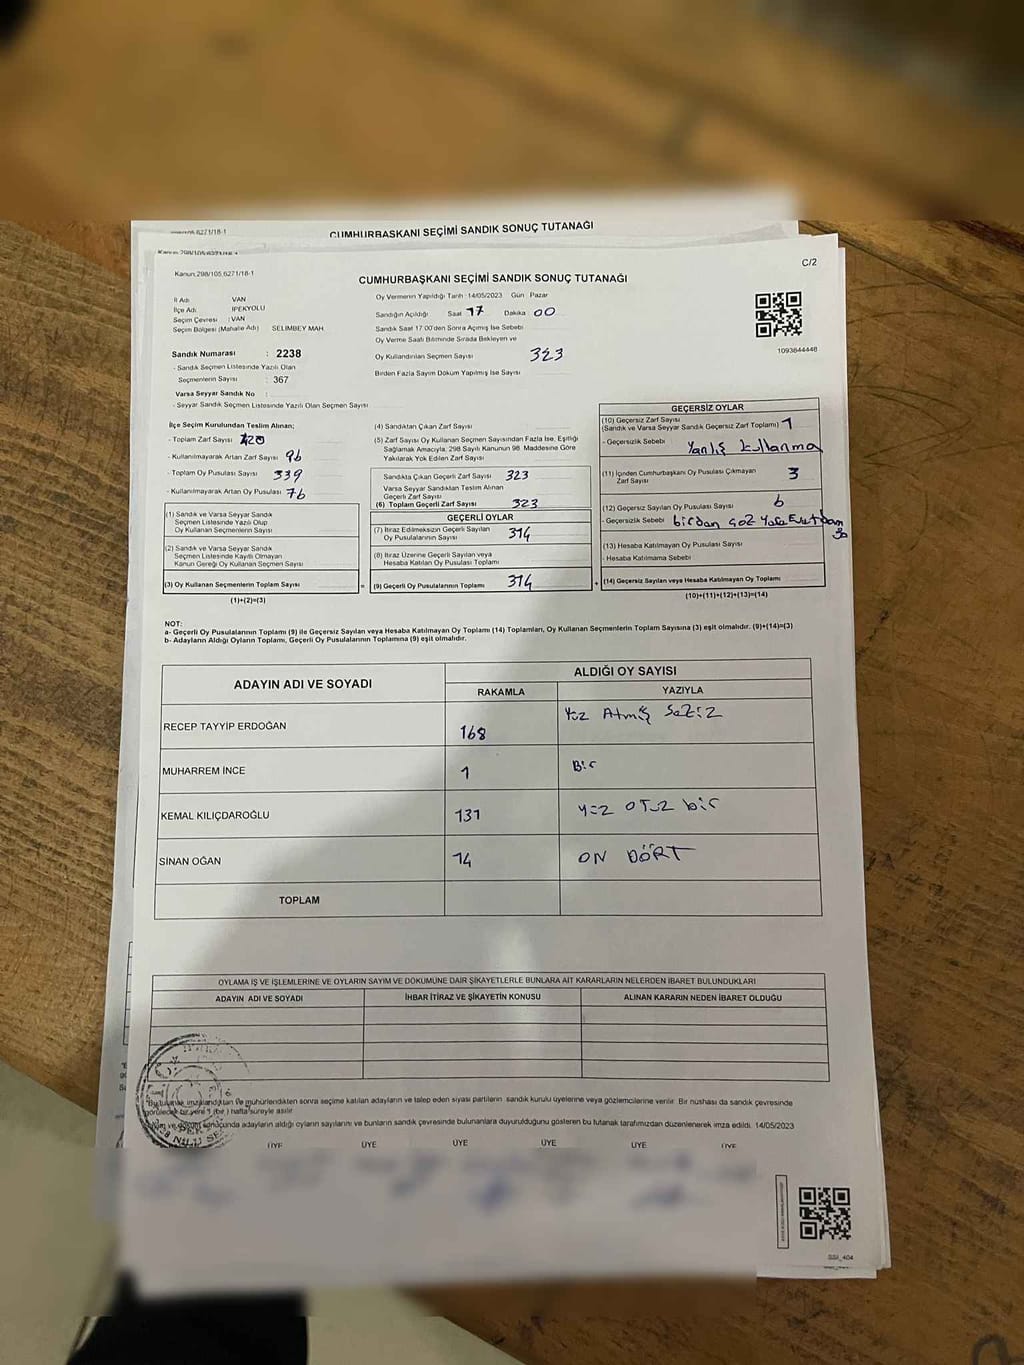 CUMHURBAŞKANI SEÇİMİ SANDIK SONUÇ TUTANAĞI
C/2
Kanun:298/105,6271/18-1
CUMHURBAŞKANI SEÇİMİ SANDIK SONUÇ TUTANAĞI
İl Adı : VAN
İlçe Adı : İPEKYOLU
Seçim Çevresi : VAN
Seçim Bölgesi (Mahalle Adı) SELİMBEY MAH.
Oy Vermenin Yapıldığı Tarih : 14/05/2023 Gün : Pazar
Sandığın Açıldığı Saat 17 Dakika 00
Sandık Saat 17.00'den Sonra Açılmış İse Sebebi
Oy Verme Saati Bitiminde Sırada Bekleyen ve
Oy Kullandırılan Seçmen Sayısı 323
Birden Fazla Sayım Döküm Yapılmış İse Sayısı
1093844448
Sandık Numarası : 2238
- Sandık Seçmen Listesinde Yazılı Olan
Seçmenlerin Sayısı : 367
Varsa Seyyar Sandık No :
- Seyyar Sandık Seçmen Listesinde Yazılı Olan Seçmen Sayısı
İlçe Seçim Kurulundan Teslim Alınan;
- Toplam Zarf Sayısı 420
- Kullanılmayarak Artan Zarf Sayısı 96
- Toplam Oy Pusulası Sayısı 339
- Kullanılmayarak Artan Oy Pusulası 76
(1) Sandık ve Varsa Seyyar Sandık
Seçmen Listesinde Yazılı Olup
Oy Kullanan Seçmenlerin Sayısı
(2) Sandık ve Varsa Seyyar Sandık
Seçmen Listesinde Kayıtlı Olmayan
Kanun Gereği Oy Kullanan Seçmen Sayısı
(3) Oy Kullanan Seçmenlerin Toplam Sayısı
(1)+(2)=(3)
(4) Sandıktan Çıkan Zarf Sayısı
(5) Zarf Sayısı Oy Kullanan Seçmen Sayısından Fazla İse, Eşitliği
Sağlamak Amacıyla, 298 Sayılı Kanunun 98. Maddesine Göre
Yakılarak Yok Edilen Zarf Sayısı
Sandıkta Çıkan Geçerli Zarf Sayısı 323
Varsa Seyyar Sandıktan Teslim Alınan
Geçerli Zarf Sayısı
(6) Toplam Geçerli Zarf Sayısı 323
GEÇERLİ OYLAR
(7) İtiraz Edilmeksizin Geçerli Sayılan
Oy Pusulalarının Sayısı 314
(8) İtiraz Üzerine Geçerli Sayılan veya
Hesaba Katılan Oy Pusulası Toplamı
= (9) Geçerli Oy Pusulalarının Toplamı 314 +
GEÇERSİZ OYLAR
(10) Geçersiz Zarf Sayısı
(Sandık ve Varsa Seyyar Sandık Geçersiz Zarf Toplamı) 1
- Geçersizlik Sebebi Yanlış kullanma
(11) İçinden Cumhurbaşkanı Oy Pusulası Çıkmayan
Zarf Sayısı 3
(12) Geçersiz Sayılan Oy Pusulası Sayısı 6
- Geçersizlik Sebebi
(13) Hesaba Katılmayan Oy Pusulası Sayısı
- Hesaba Katılmama Sebebi
(14) Geçersiz Sayılan veya Hesaba Katılmayan Oy Toplamı
(10)+(11)+(12)+(13)=(14)
NOT:
a- Geçerli Oy Pusulalarının Toplamı (9) ile Geçersiz Sayılan veya Hesaba Katılmayan Oy Toplamı (14) Toplamları, Oy Kullanan Seçmenlerin Toplam Sayısına (3) eşit olmalıdır. (9)+(14)=(3)
b- Adayların Aldığı Oyların Toplamı, Geçerli Oy Pusulalarının Toplamına (9) eşit olmalıdır.
ADAYIN ADI VE SOYADI
ALDIĞI OY SAYISI
RAKAMLA YAZIYLA
RECEP TAYYİP ERDOĞAN 168 Yüz Atmış Sekiz
MUHARREM İNCE 1 Bir
KEMAL KILIÇDAROĞLU 131 yüz OTuz bir
SİNAN OĞAN 14 ON DÖRT
TOPLAM
OYLAMA İŞ VE İŞLEMLERİNE VE OYLARIN SAYIM VE DÖKÜMÜNE DAİR ŞİKAYETLERLE BUNLARA AİT KARARLARIN NELERDEN İBARET BULUNDUKLARI
ADAYIN ADI VE SOYADI İHBAR İTİRAZ VE ŞİKAYETİN KONUSU ALINAN KARARIN NEDEN İBARET OLDUĞU
imzalandıktan ve mühürlendikten sonra seçime katılan adayların ve talep eden siyasi partilerin sandık kurulu üyelerine veya gözlemcilerine verilir. Bir nüshası da sandık çevresinde
bir yere 1 (bir) hafta süreyle asılır.
sonucunda adayların aldığı oyların sayılarını ve bunların sandık çevresinde bulunanlara duyurulduğunu gösteren bu tutanak tarafımızdan düzenlenerek imza edildi. 14/05/2023
ÜYE ÜYE ÜYE ÜYE ÜYE ÜYE
SSI_404